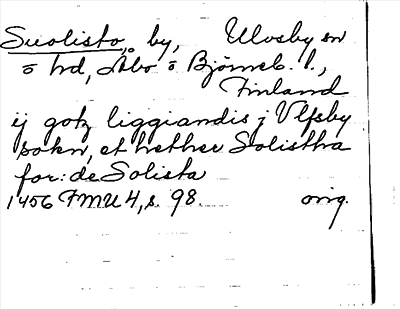 Suolisto, by, Ulvsby sn
ö hd, Åbo ö Björneb. l.,
Finland
ij gotz liggiandis j Vlfsby
sokn, et hether Solistha
for: de Solista
1456 FMU 4, s. 98. orig.